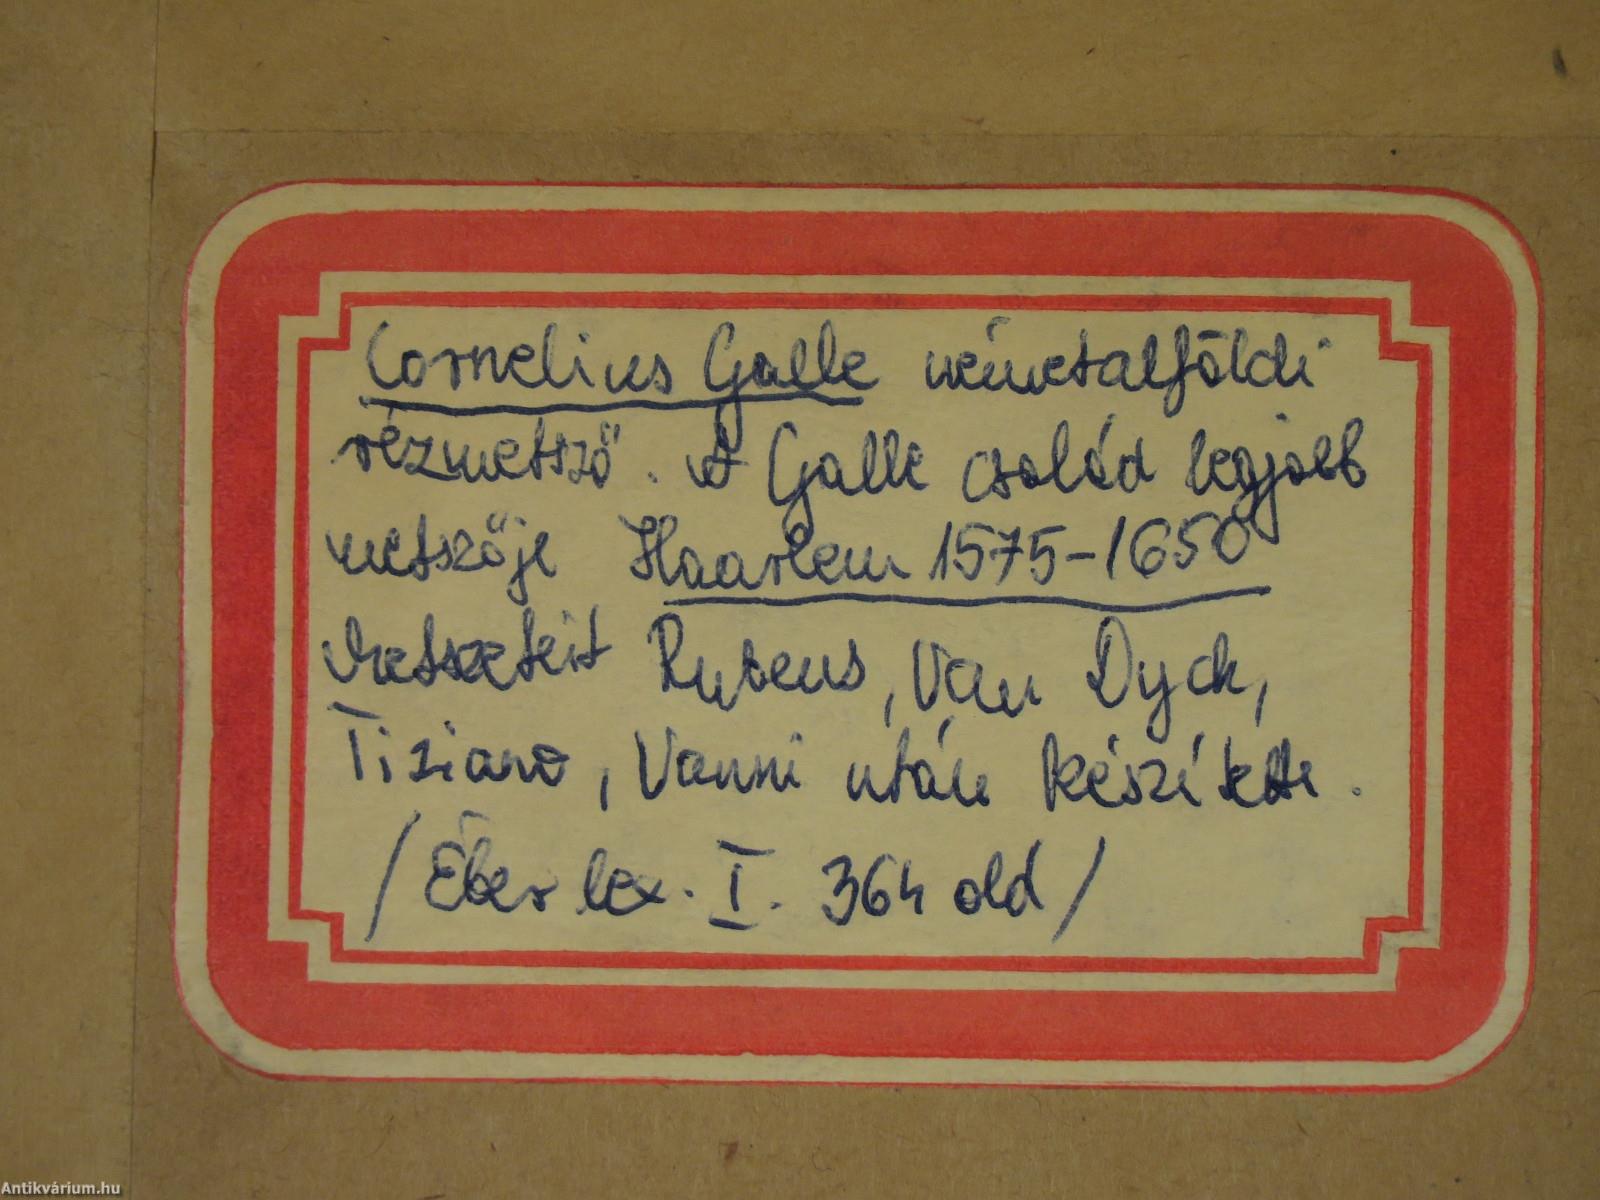 Cornelius Galle németalföldi
rézmetsző. A Galle család legjobb
metszője Haarlem 1575-1650
Metszeteit Rubens, Van Dyck,
Tiziano, Vanni után készítette.
/Éber lex. I. 364 old/
Antikvárium.hu